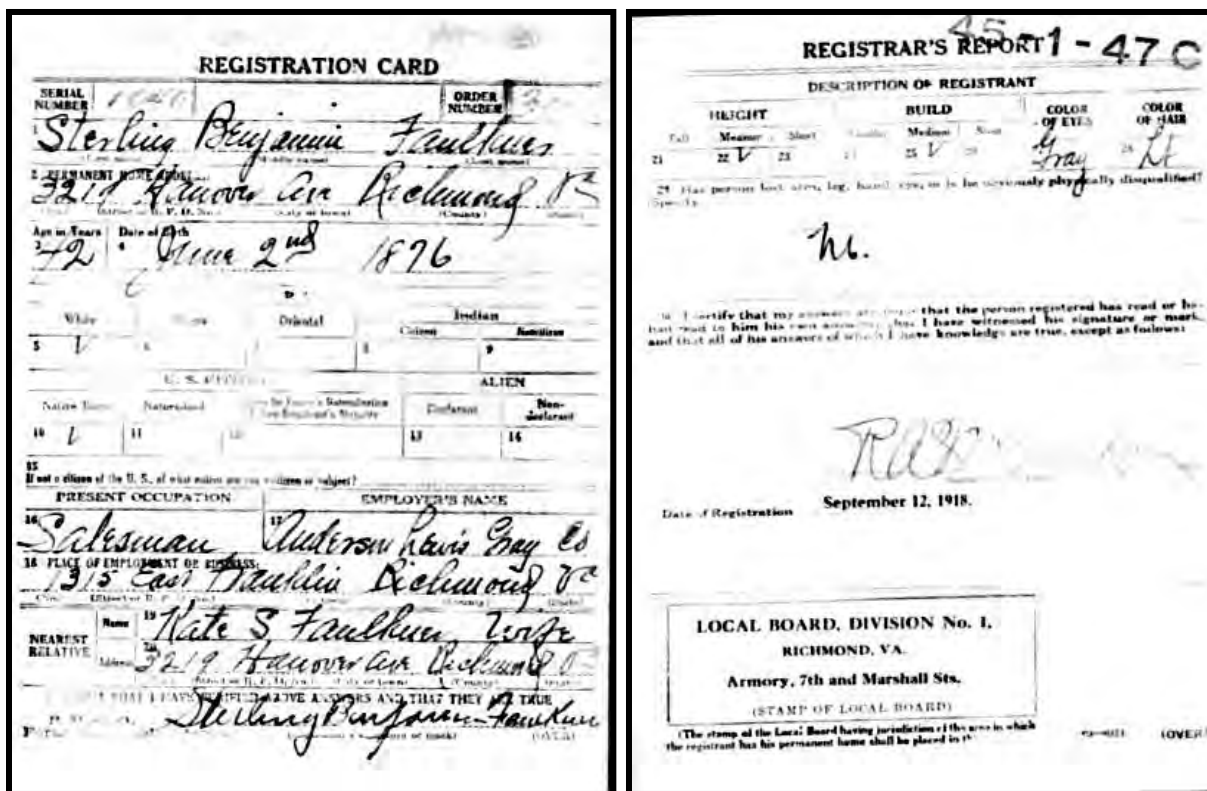 REGISTRATION CARD
SERIAL NUMBER
ORDER NUMBER
1 Sterling Benjamin Faulkner
(Last name)
2 PERMANENT HOME
3219 Hanover Ave Richmond Va
(City or town) (County)
Age in Years Date of Birth
3 42 4 June 2nd 1876
White Oriental Indian
Citizen
5 V 6 7 8 9
U. S. ALIEN
Native Born Naturalized Declarant Non-declarant
10 V 11 12 13 14
15
If not a citizen of the U. S., of what nation are you a citizen or subject?
PRESENT OCCUPATION EMPLOYER'S NAME
16 Salesman 17 Anderson Lewis Gray Co
18 PLACE OF EMPLOYMENT OR BUSINESS:
1315 East Franklin Richmond Va
NEAREST RELATIVE
Name 19 Kate S. Faulkner, Wife
Address 20 3219 Hanover Ave Richmond Va
THAT I HAVE VERIFIED ABOVE ANSWERS AND THAT THEY ARE TRUE
Sterling Benjamin Faulkner
(OVER)
45-1-47 C
REGISTRAR'S REPORT
DESCRIPTION OF REGISTRANT
HEIGHT BUILD COLOR OF EYES COLOR OF HAIR
Tall Medium Short Medium Stout
21 22 V 23 24 25 V 26 Gray 28 Lt
29 Has person lost arm, leg, hand, eye, or is he obviously physically disqualified?
Specify
No.
30 I certify that my answers are true; that the person registered has read or has
had read to him his own answers; that I have witnessed his signature or mark,
and that all of his answers of which I have knowledge are true, except as follows:
Date of Registration September 12, 1918.
LOCAL BOARD, DIVISION No. 1,
RICHMOND, VA.
Armory, 7th and Marshall Sts.
(STAMP OF LOCAL BOARD)
(The stamp of the Local Board having jurisdiction of the area in which
the registrant has his permanent home shall be placed in
(OVER)